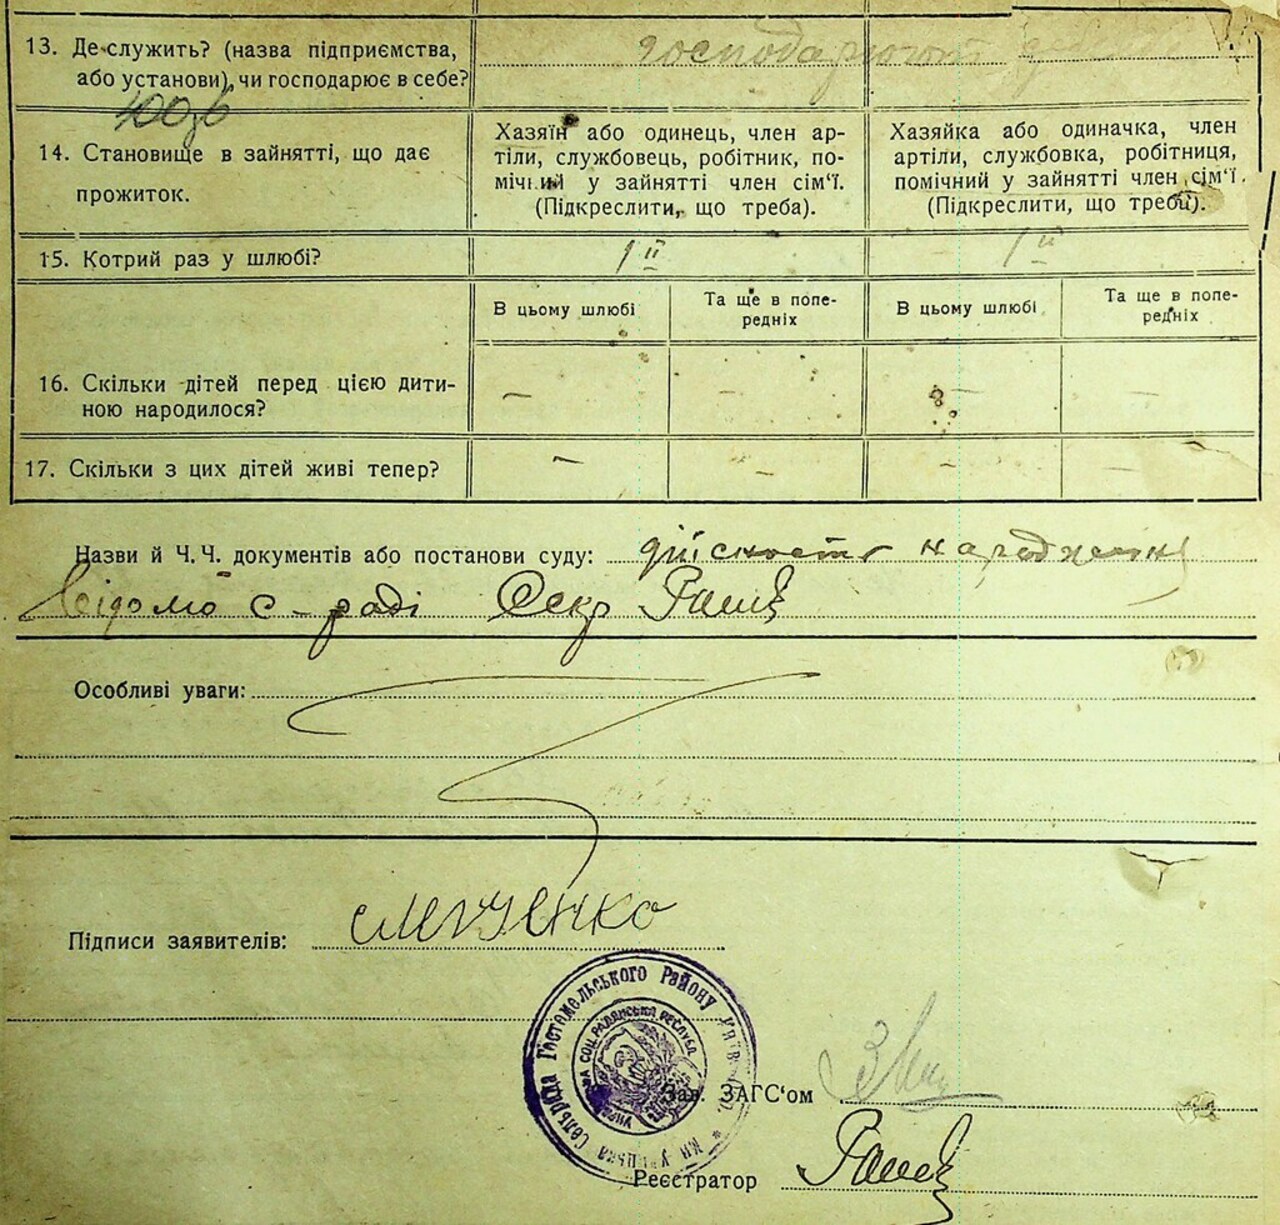 13. Де служить? (назва підприємства,
або установи), чи господарює в себе?
господарюют
400зб
14. Становище в зайнятті, що дає
прожиток.
Хазяїн або одинець, член ар-
тіли, службовець, робітник, по-
мічний у зайнятті член сім‘ї.
(Підкреслити, що треба).
Хазяйка або одиначка, член
артіли, службовка, робітниця,
помічний у зайнятті член сім‘ї.
(Підкреслити, що треба).
15. Котрий раз у шлюбі?
1й
1й
В цьому шлюбі
Та ще в попе-
редніх
В цьому шлюбі
Та ще в попе-
редніх
16. Скільки дітей перед цією дити-
ною народилося?
— — — —
17. Скільки з цих дітей живі тепер?
— — — —
Назви й Ч.Ч. документів або постанови суду: дійсность народження
Відомо с-раді Секр
Особливі уваги:
Підписи заявителів:
Сельрада Гостомельського Району Київ
Соц. Радянська Республ
Зав. ЗАГС‘ом
Реєстратор